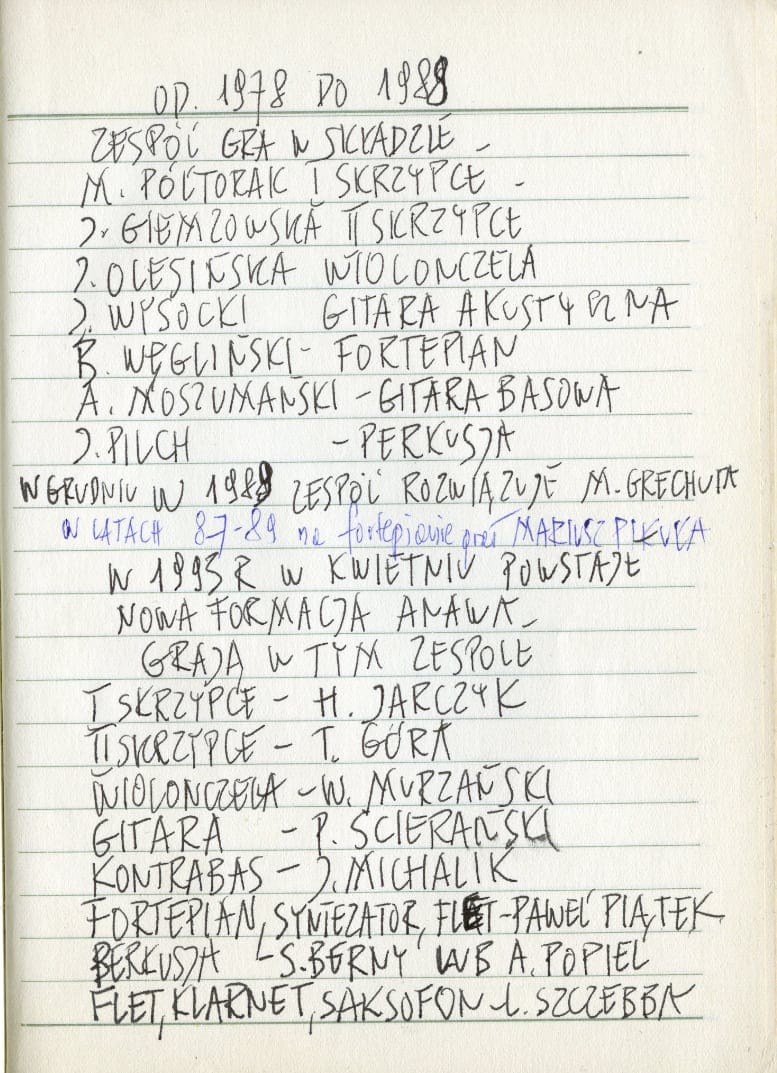 OD. 1978 DO 1989
ZESPÓŁ GRA W SKŁADZIE -
M. PÓŁTORAK I SKRZYPCE -
J. GIEMZOWSKA II SKRZYPCE
J. OLESIŃSKA WIOLONCZELA
J. WYSOCKI GITARA AKUSTYCZNA
B. WĘGLIŃSKI - FORTEPIAN
A. MOSZUMAŃSKI - GITARA BASOWA
J. PILCH - PERKUSJA
W GRUDNIU W 1989 ZESPÓŁ ROZWIĄZUJE M. GRECHUTA
W LATACH 87-89 na fortepianie grał MARIUSZ PIKUŁA
W 1993 R W KWIETNIU POWSTAJE
NOWA FORMACJA ANAWA -
GRAJĄ W TYM ZESPOLE
I SKRZYPCE - H. JARCZYK
II SKRZYPCE - T. GÓRA
WIOLONCZELA - W. MURZAŃSKI
GITARA - P. ŚCIERAŃSKI
KONTRABAS - J. MICHALIK
FORTEPIAN, SYNTEZATOR, FLET - PAWEŁ PIĄTEK
PERKUSJA - S. BERNY LUB A. POPIEL
FLET, KLARNET, SAKSOFON - L. SZCZERBA